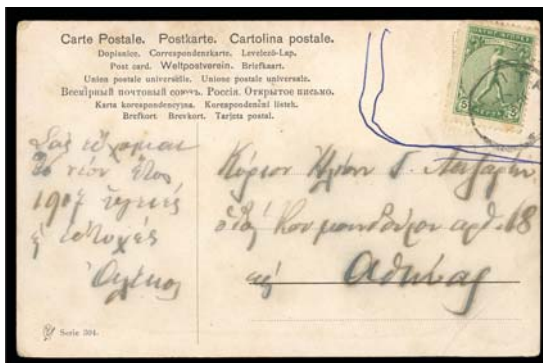 Carte Postale. Postkarte. Cartolina postale.
Dopisnice. Correspondenzkarte. Levelező-Lap.
Post card. Weltpostverein. Briefkaart.
Union postale universelle. Unione postale universale.
Всемірный почтовый союзъ. Россія. Открытое письмо.
Karta korespondencyjna. Korespondenční listek.
Brefkort. Brevkort. Tarjeta postal.
Σας εύχομαι
το νέον έτος
1907 υγιές
ευτυχές
Κύριον Ηλίαν Γ.
οδός Κουμουνδούρου αρθ. 68
Αθήνας
Serie 304.
5 5